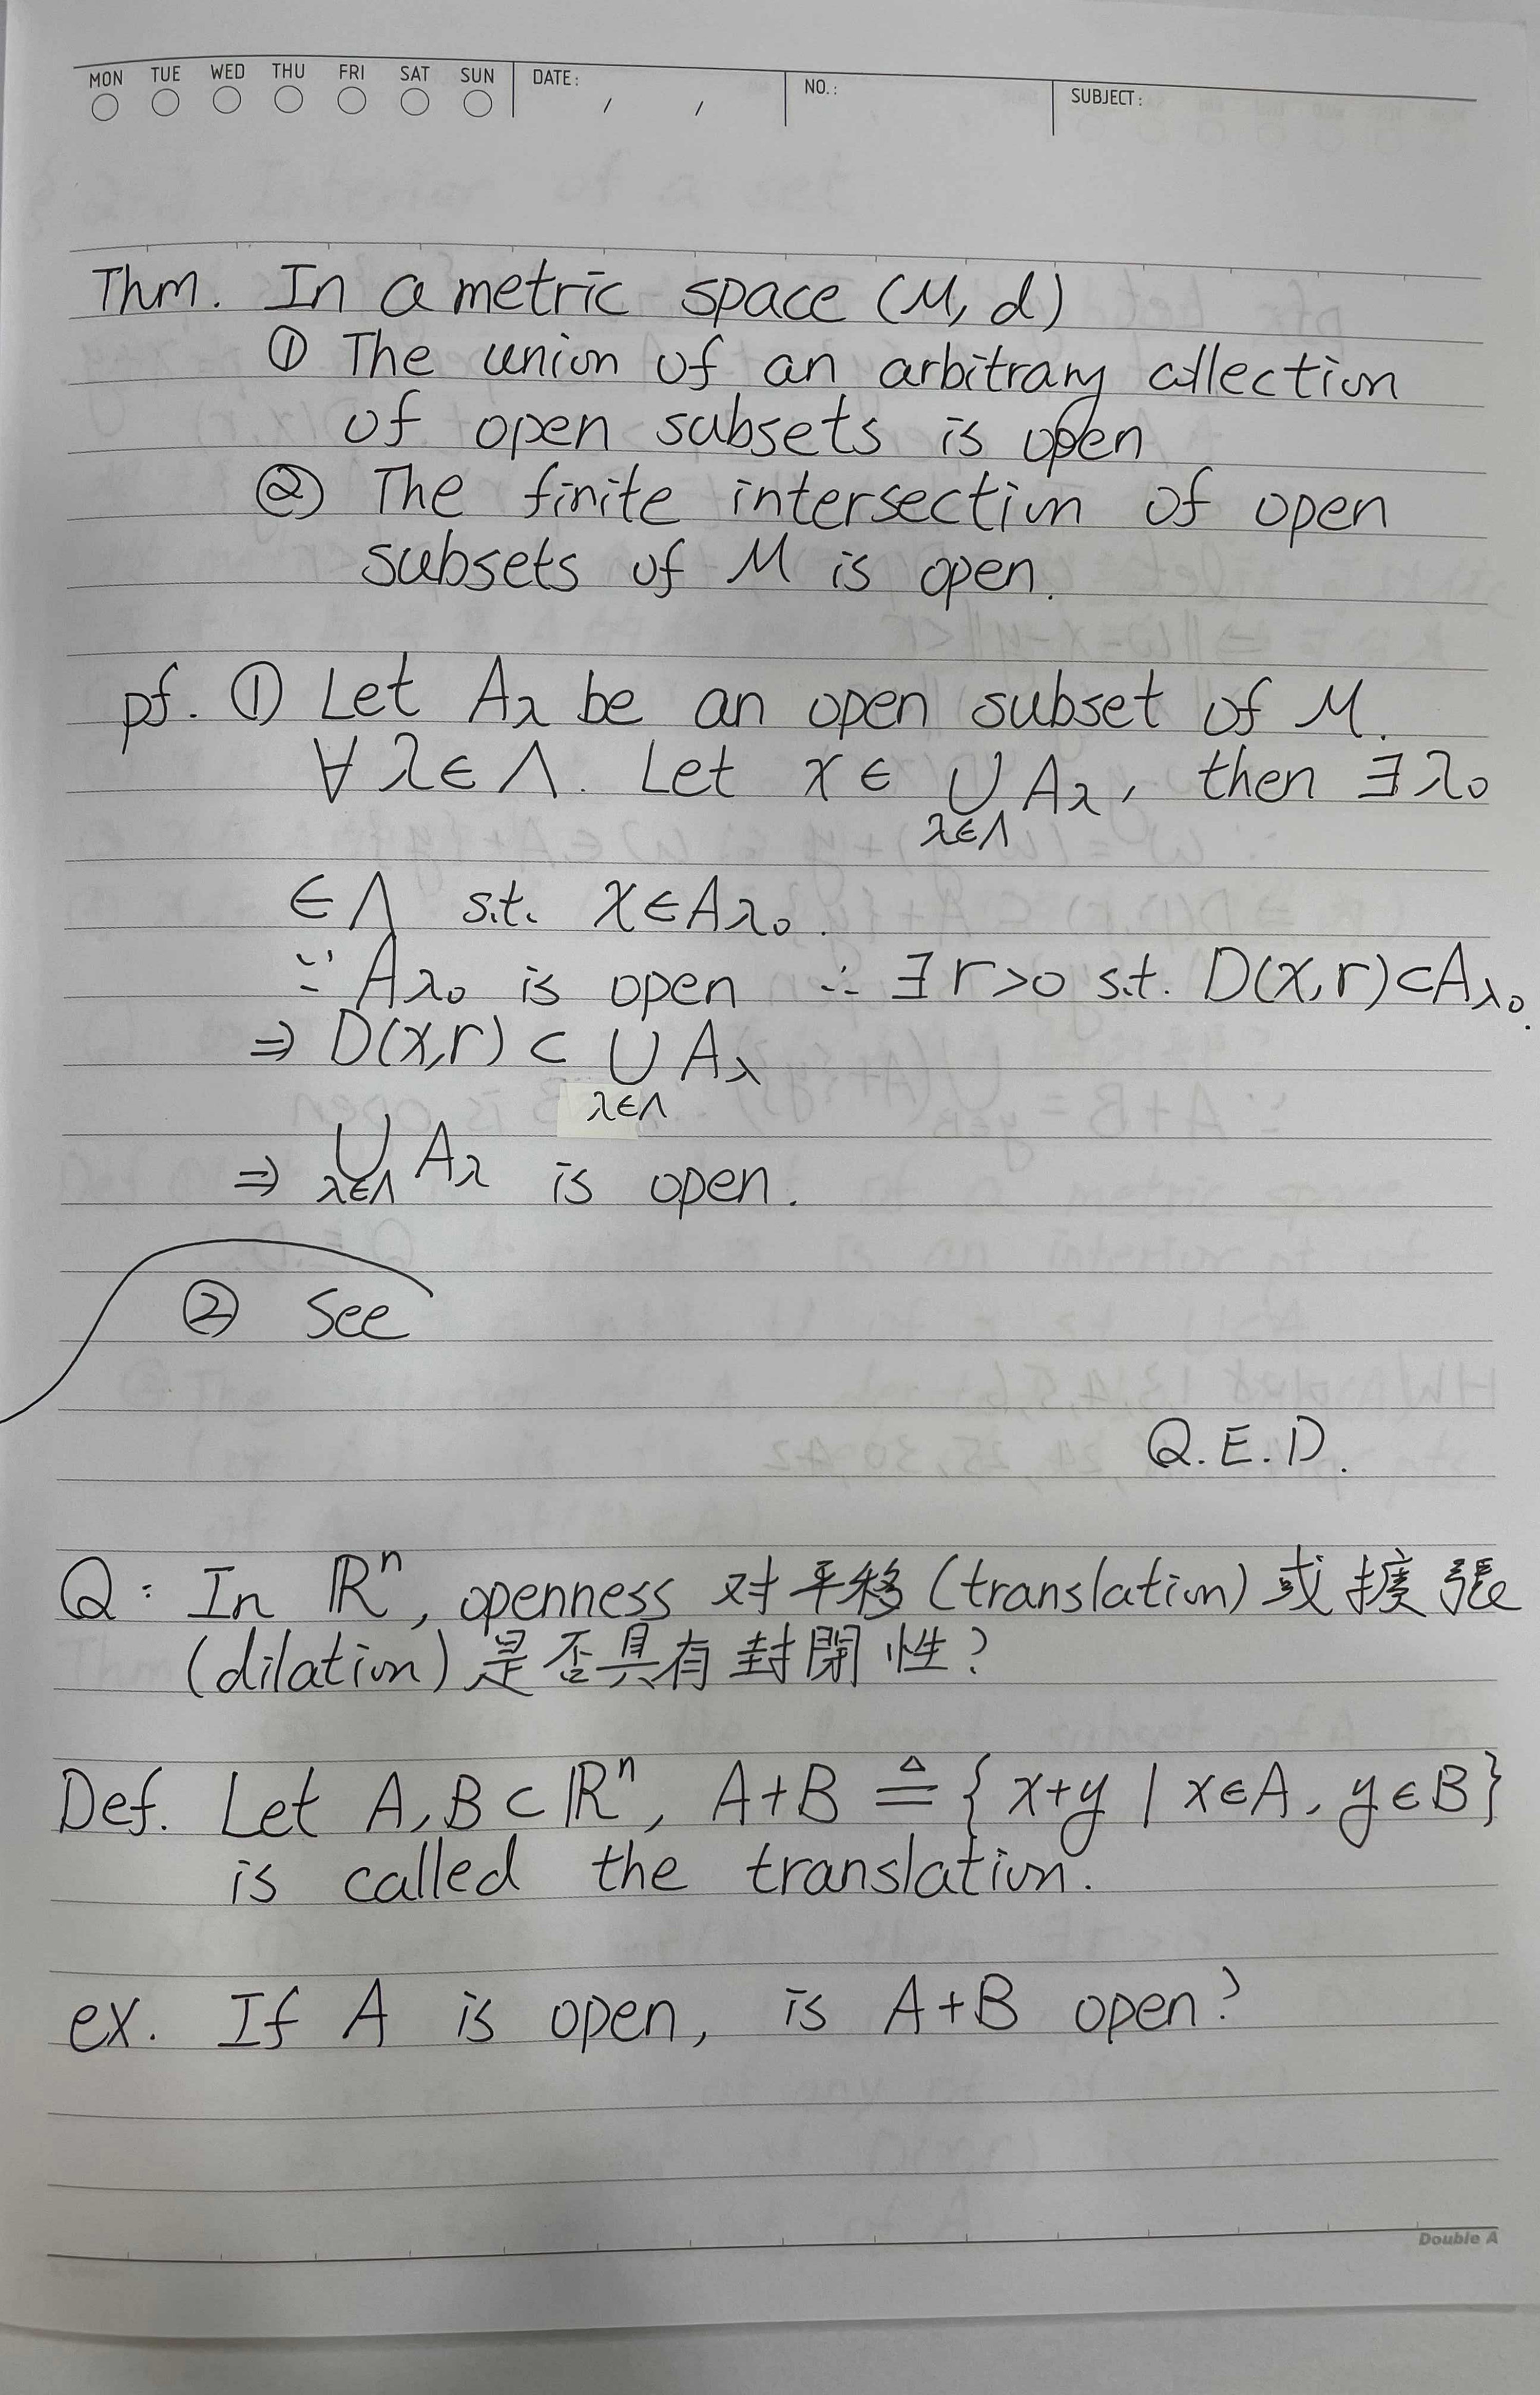 MON TUE WED THU FRI SAT SUN DATE: / / NO.: SUBJECT:
Thm. In a metric space (M, d)
① The union of an arbitrary collection
of open subsets is open
② The finite intersection of open
subsets of M is open.
pf. ① Let Aλ be an open subset of M.
∀ λ∈Λ. Let x ∈ ∪_{λ∈Λ} Aλ, then ∃ λ₀
∈ Λ s.t. x∈Aλ₀.
∵ Aλ₀ is open ∴ ∃ r>0 s.t. D(x,r)⊂Aλ₀.
⇒ D(x,r) ⊂ ∪_{λ∈Λ} Aλ
⇒ ∪_{λ∈Λ} Aλ is open.
② See
Q.E.D.
Q: In ℝⁿ, openness 对平移(translation)或擴張
(dilation)是否具有封閉性?
Def. Let A, B ⊂ ℝⁿ, A+B ≜ {x+y | x∈A, y∈B}
is called the translation.
ex. If A is open, is A+B open?
Double A